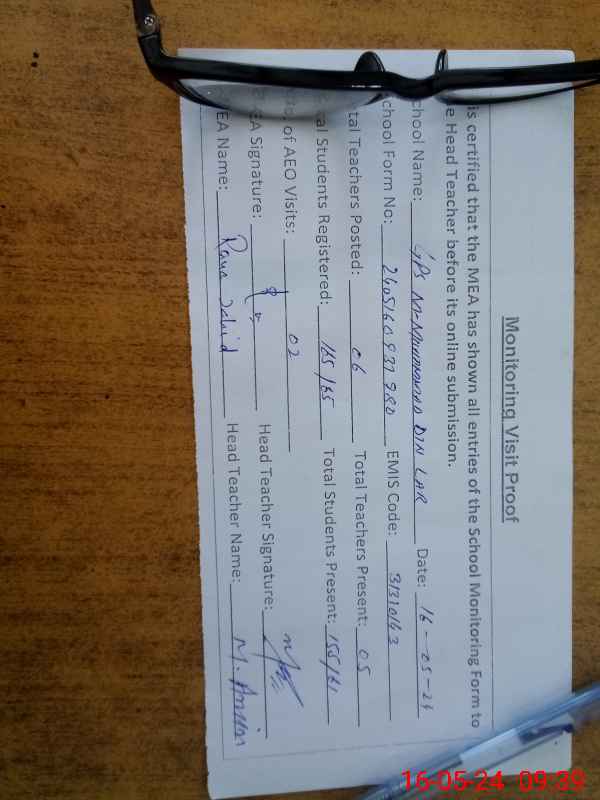 Monitoring Visit Proof
is certified that the MEA has shown all entries of the School Monitoring Form to
e Head Teacher before its online submission.
chool Name: GPS M-Mohammad DIN LAR Date: 16-05-24
chool Form No: EMIS Code: 31310143
tal Teachers Posted: 06 Total Teachers Present: 05
al Students Registered: 165/165 Total Students Present: 155/61
of AEO Visits: 02
EA Signature: Head Teacher Signature:
EA Name: Rana Zahid Head Teacher Name: M.
16-05-24 09:39